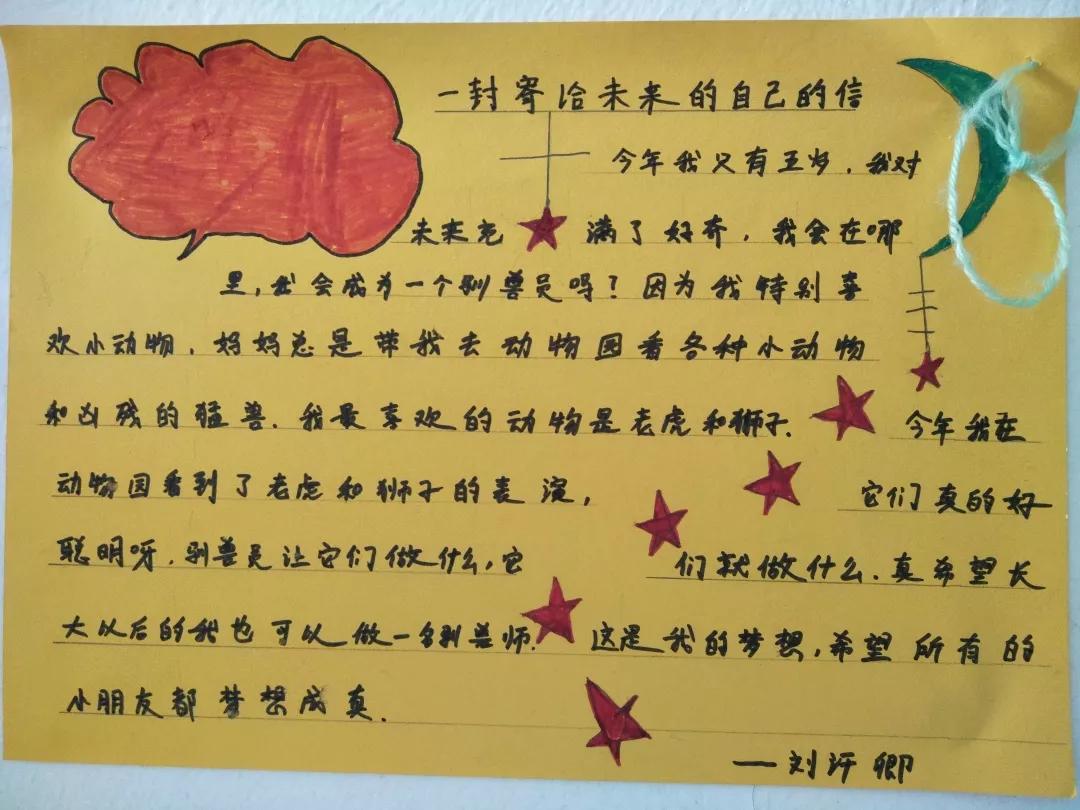 一封寄给未来的自己的信
今年我只有五岁，我对
未来充满了好奇，我会在哪
里，我会成为一个驯兽员吗？因为我特别喜
欢小动物，妈妈总是带我去动物园看各种小动物
和凶残的猛兽.我最喜欢的动物是老虎和狮子.今年我在
动物园看到了老虎和狮子的表演，它们真的好
聪明呀.驯兽员让它们做什么，它们就做什么.真希望长
大以后的我也可以做一名驯兽师.这是我的梦想，希望所有的
小朋友都梦想成真.
—刘汧卿